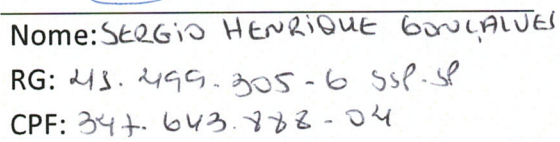 Nome: SERGIO HENRIQUE GONÇALVES
RG: 43.499.305-6 SSP.SP
CPF: 347.643.888-04